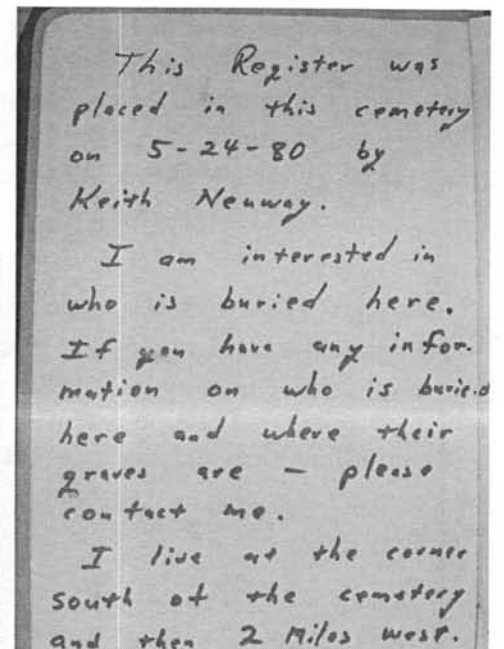 This Register was
placed in this cemetery
on 5-24-80 by
Keith Neuway.
I am interested in
who is buried here.
If you have any infor-
mation on who is buried
here and where their
graves are - please
contact me.
I live at the corner
south of the cemetery
and then 2 Miles west.